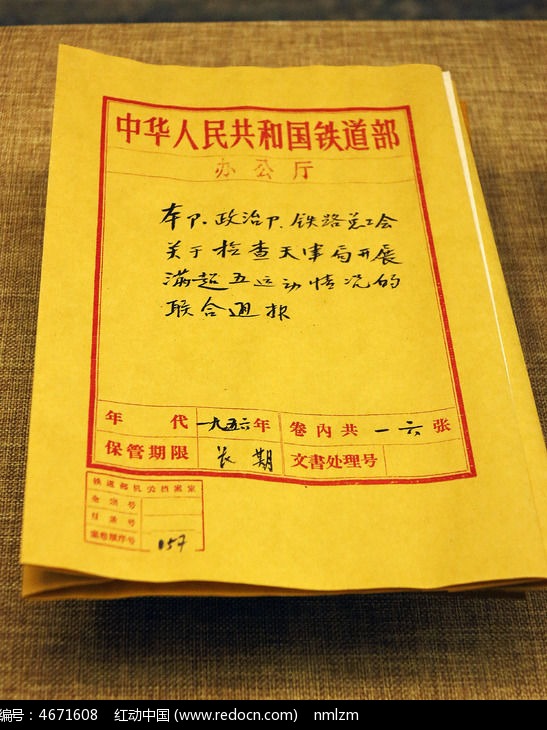 中华人民共和国铁道部
办公厅
本卩、政治卩、铁路总工会
关于检查天津局开展
满超五运动情况的
联合通报
年代 一九五六年 卷内共 一六 张
保管期限 长期 文書处理号
铁道部机关档案室
全宗号
目录号
案卷顺序号 057
编号：4671608 红动中国 (www.redocn.com) nmlzm